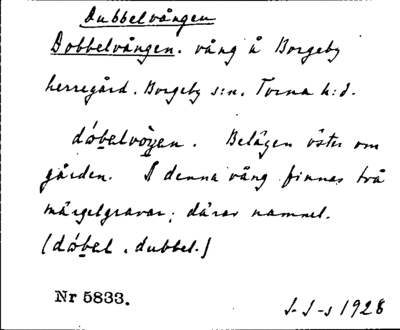 Dubbelvången
Dobbelvången. vång å Borgeby
herregård. Borgeby s:n. Torna h:d.
dóbelvòŋen. Belägen öster om
gården. I denna vång finnas två
märgelgravar; därav namnet.
(dóbel, dubbel.)
Nr 5833.
1928